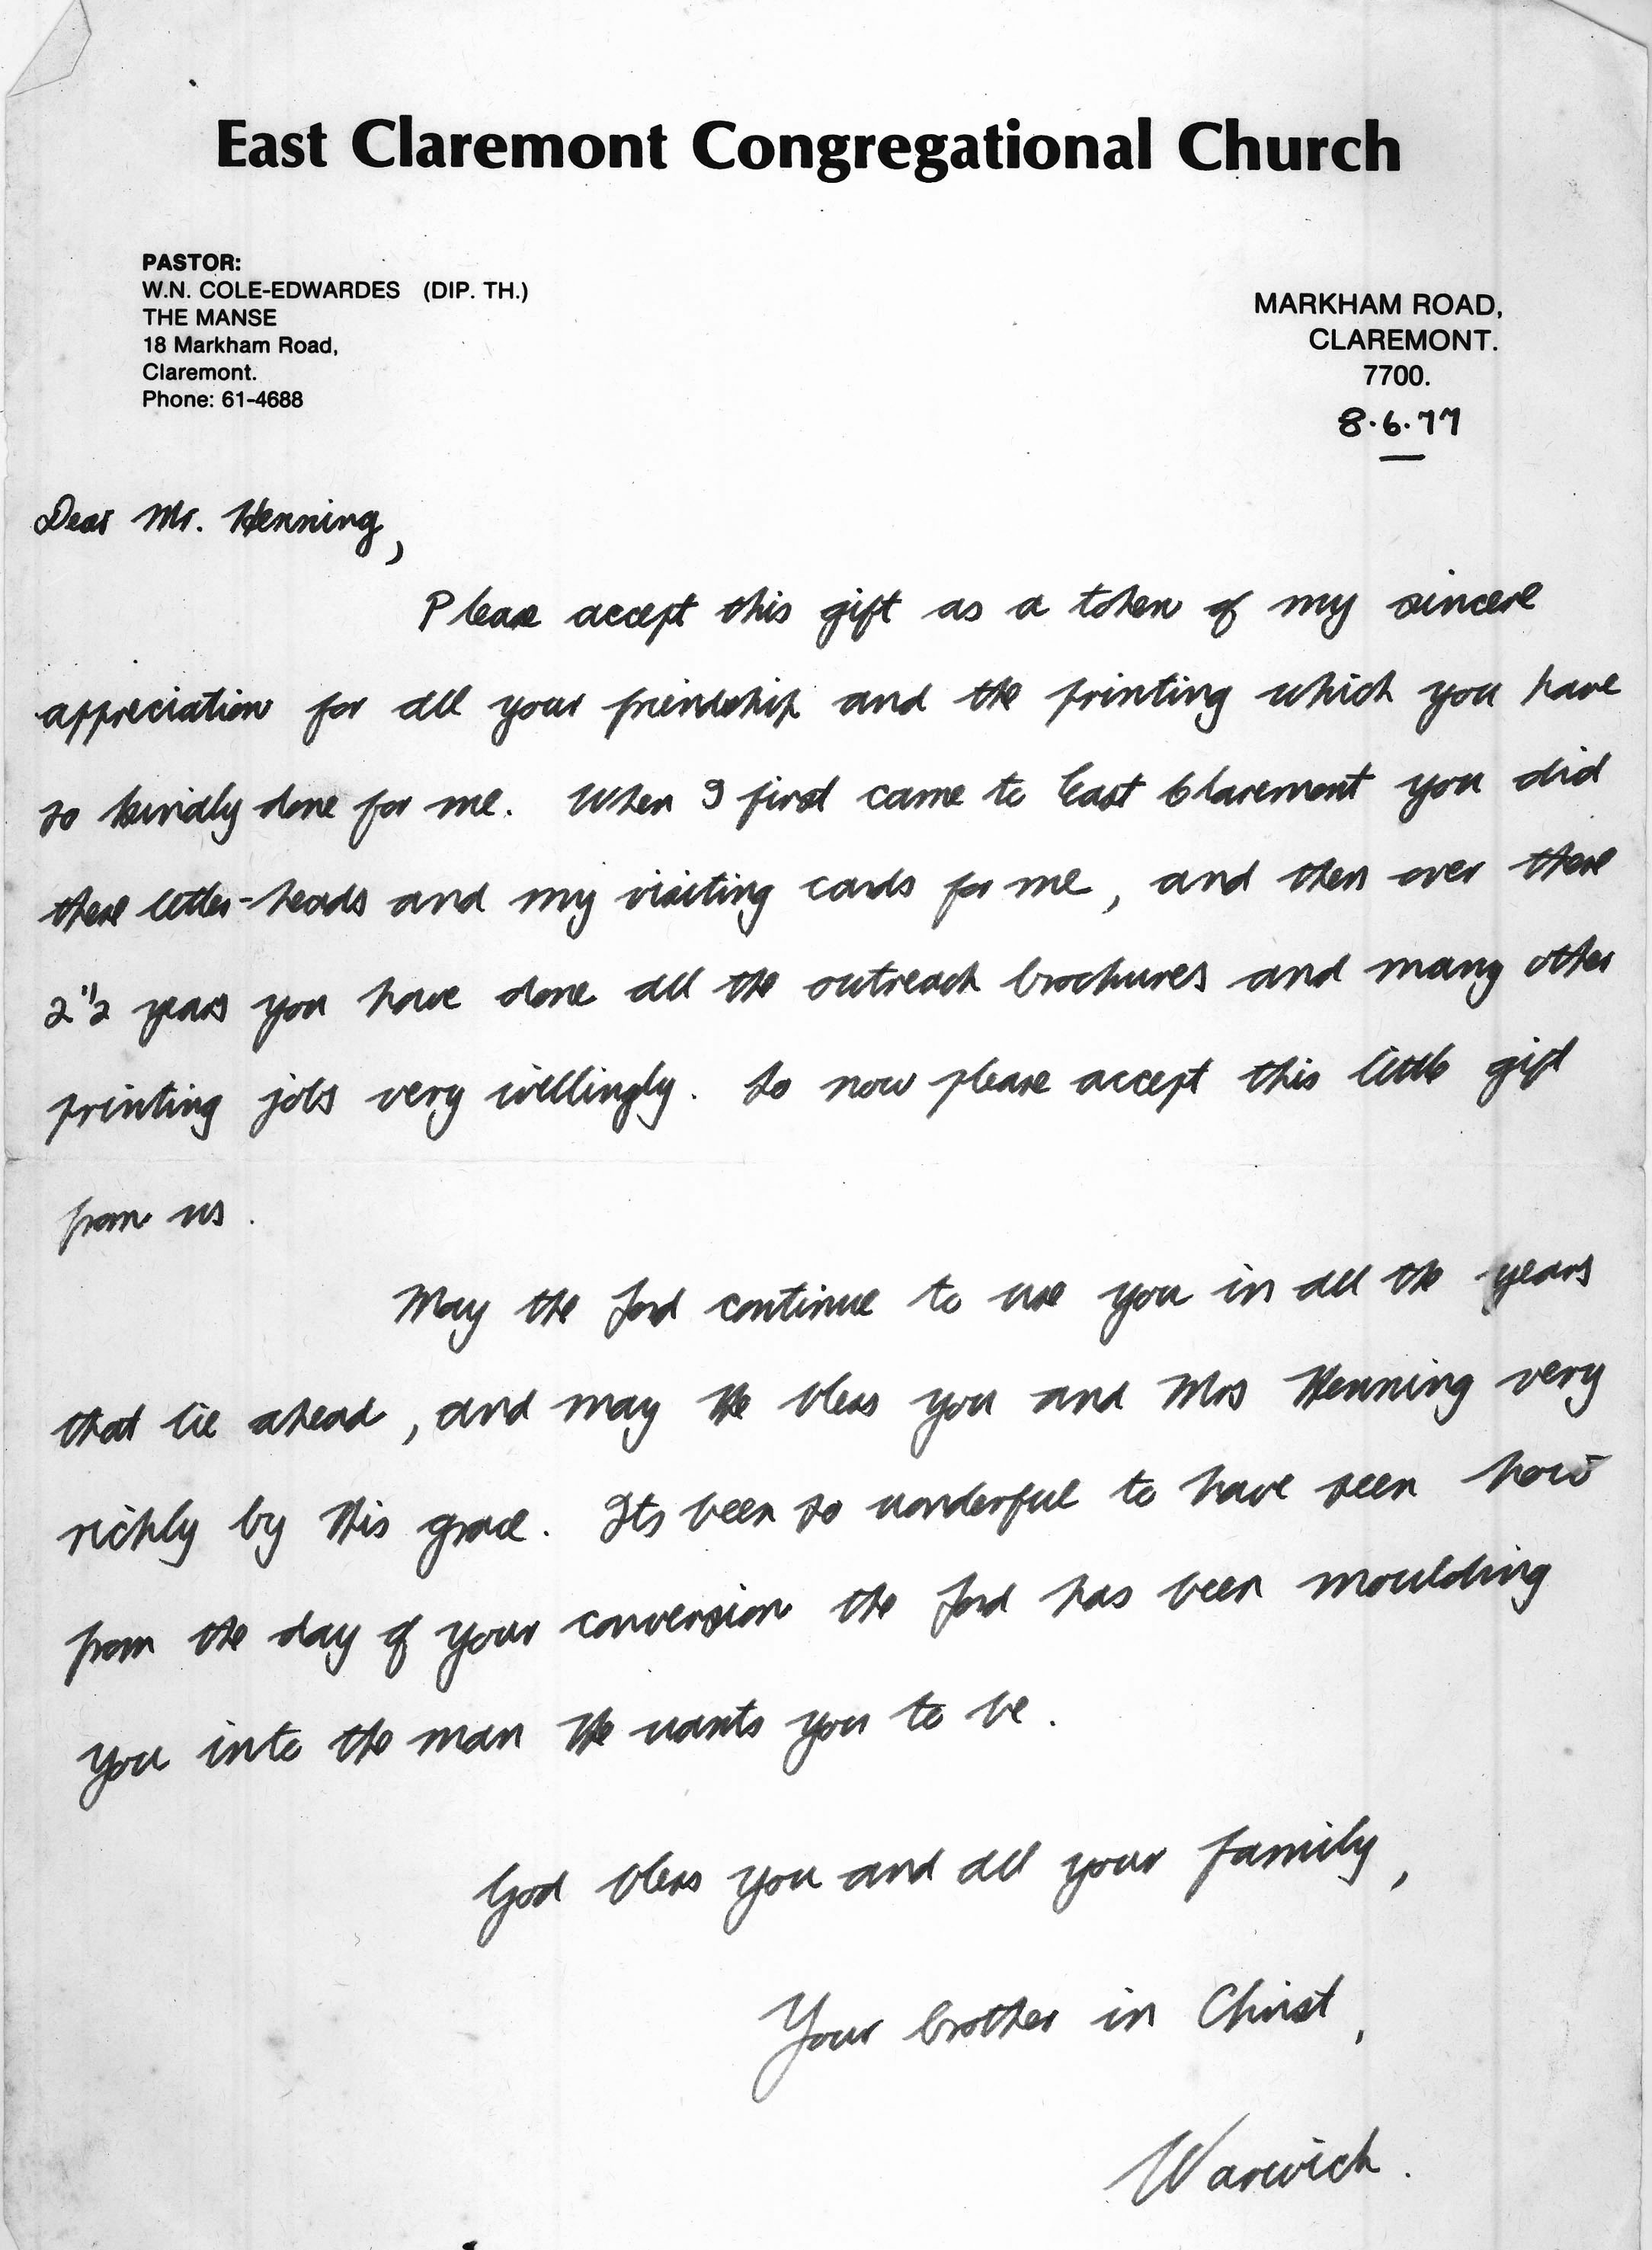 East Claremont Congregational Church
PASTOR:
W.N. COLE-EDWARDES (DIP. TH.)
THE MANSE
18 Markham Road,
Claremont.
Phone: 61-4688
MARKHAM ROAD,
CLAREMONT.
7700.
8.6.77
Dear Mr. Henning,
Please accept this gift as a token of my sincere
appreciation for all your friendship and the printing which you have
so kindly done for me. When I first came to East Claremont you did
these letter-heads and my visiting cards for me, and then over these
2 1/2 years you have done all the outreach brochures and many other
printing jobs very willingly. So now please accept this little gift
from us.
May the Lord continue to use you in all the years
that lie ahead, and may He bless you and Mrs Henning very
richly by His grace. Its been so wonderful to have seen how
from the day of your conversion the Lord has been moulding
you into the man He wants you to be.
God bless you and all your family,
Your brother in Christ,
Warwick.